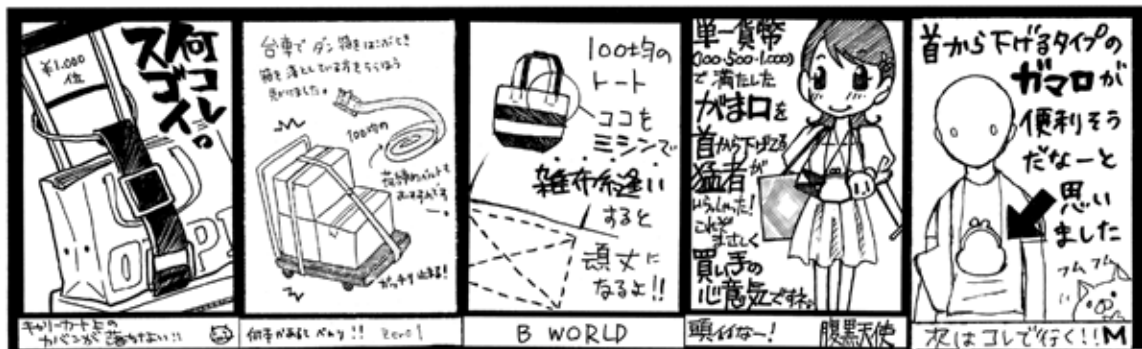 何コレ。
スゴイ。
¥1,000
位
キャリーカート上の
カバンが落ちない!!
台車でダン箱をはこぶとき
箱を落としている方をちらほら
見かけました。
100均の
荷締めベルトも
おすすめです
ガッチリ
何年かあるしべんり!!
Zero1
100均の
トート
ココを
ミシンで
雑布縫い
すると
頑丈に
なるよ!!
B WORLD
単一貨幣
(100・500・1,000)
で満たした
がま口を
首から下げてる
猛者が
いらっしゃった!
これぞ
まさしく
買い手の
心意気ですネ。
頭イイなー!
腹黒天使
首から下げるタイプの
ガマ口が
便利そう
だなーと
思い
ました
フムフム
次はコレで行く!!
M